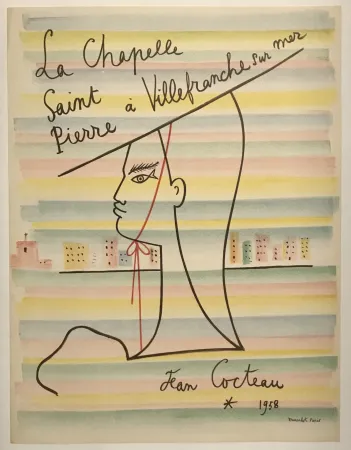 La Chapelle
Saint
Pierre à Villefranche sur mer
Jean Cocteau
* 1958